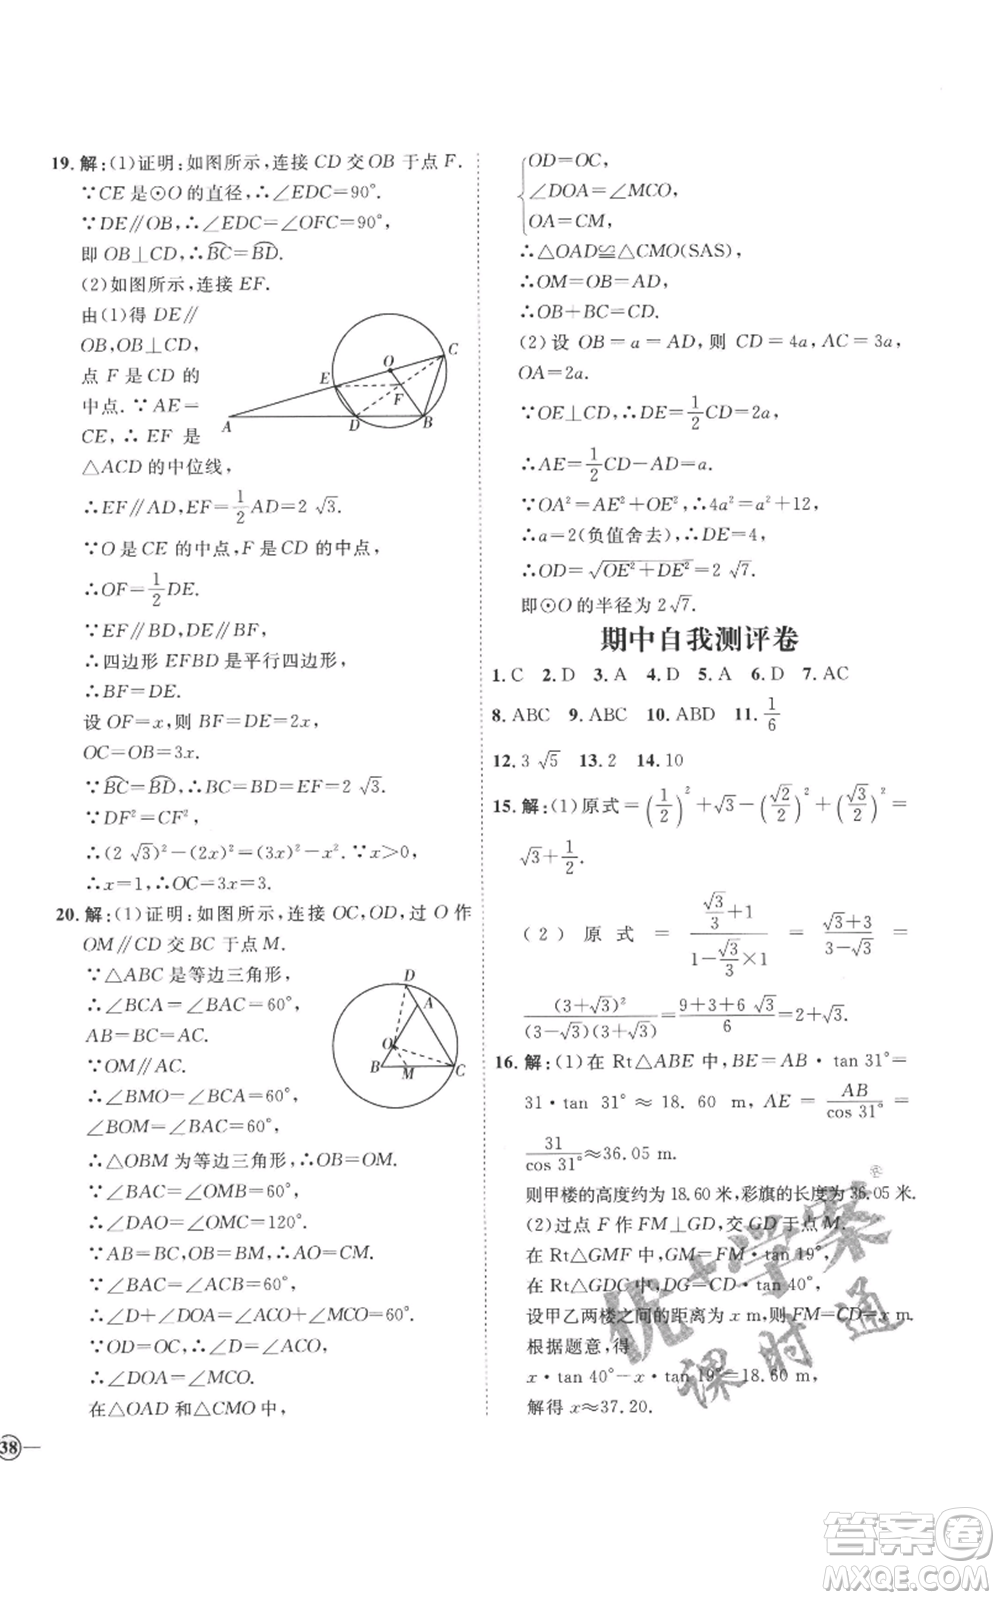 19. 解:(1)证明:如图所示,连接 CD 交 OB 于点 F.
∵CE 是⊙O 的直径,∴∠EDC=90°.
∵DE∥OB,∴∠EDC=∠OFC=90°,
即 OB⊥CD,∴⌒BC=⌒BD.
(2)如图所示,连接 EF.
由(1)得 DE∥
OB,OB⊥CD,
点 F 是 CD 的
中点. ∵ AE=
CE,∴ EF 是
△ACD 的中位线,
∴EF∥AD,EF=1/2AD=2√3.
∵O 是 CE 的中点,F 是 CD 的中点,
∴OF=1/2DE.
∵EF∥BD,DE∥BF,
∴四边形 EFBD 是平行四边形,
∴BF=DE.
设 OF=x,则 BF=DE=2x,
OC=OB=3x.
∵⌒BC=⌒BD,∴BC=BD=EF=2√3.
∵DF²=CF²,
∴(2√3)²-(2x)²=(3x)²-x². ∵x>0,
∴x=1,∴OC=3x=3.
A E O C D F B
20. 解:(1)证明:如图所示,连接 OC,OD,过 O 作
OM∥CD 交 BC 于点 M.
∵△ABC 是等边三角形,
∴∠BCA=∠BAC=60°,
AB=BC=AC.
∵OM∥AC,
∴∠BMO=∠BCA=60°,
∠BOM=∠BAC=60°,
∴△OBM 为等边三角形,∴OB=OM.
∵∠BAC=∠OMB=60°,
∴∠DAO=∠OMC=120°.
∵AB=AC,OB=BM,∴OA=CM.
∵∠BAC=∠ACB=60°,
∴∠D+∠DOA=∠ACO+∠MCO=60°.
∵OD=OC,∴∠D=∠ACO,
∴∠DOA=∠MCO.
在△OAD 和△CMO 中,
D A O B M C
38
OD=OC,
∠DOA=∠MCO,
OA=CM,
∴△OAD≌△CMO(SAS),
∴OM=AD,∴OB=AD,
∴OB+BC=CD.
(2)设 OB=a=AD,则 CD=4a,AC=3a,
OA=2a.
∵OE⊥CD,∴DE=1/2CD=2a,
∴AE=1/2CD-AD=a.
∵OA²=AE²+OE²,∴4a²=a²+12,
∴a=2(负值舍去),∴DE=4,
∴OD=√(OE²+DE²)=2√7.
即⊙O 的半径为 2√7.
期中自我测评卷
1. C 2. D 3. A 4. D 5. A 6. D 7. AC
8. ABC 9. ABC 10. ABD 11. 1/6
12. 3√5 13. 2 14. 10
15. 解:(1)原式=(1/2)²+√3-(√2/2)²+(√3/2)²=
√3+1/2.
(2) 原 式 = (√3/3+1)/(1-√3/3×1) = (√3+3)/(3-√3) =
(3+√3)²/((3-√3)(3+√3))=(9+3+6√3)/6=2+√3.
16. 解:(1)在 Rt△ABE 中,BE=AB·tan 31°=
31·tan 31°≈18.60 m,AE=AB/cos 31°=
31/cos 31°≈36.05 m.
则甲楼的高度约为 18.60 米,彩旗的长度为 36.05 米.
(2)过点 F 作 FM⊥GD,交 GD 于点 M.
在 Rt△GMF 中,GM=FM·tan 19°,
在 Rt△GDC 中,DG=CD·tan 40°,
设甲乙两楼之间的距离为 x m,则 FM=CD=x m.
根据题意,得
x·tan 40°-x·tan 19°=18.60 m,
解得 x≈37.20.
优+学案
课时通
答案卷
MXQE.COM